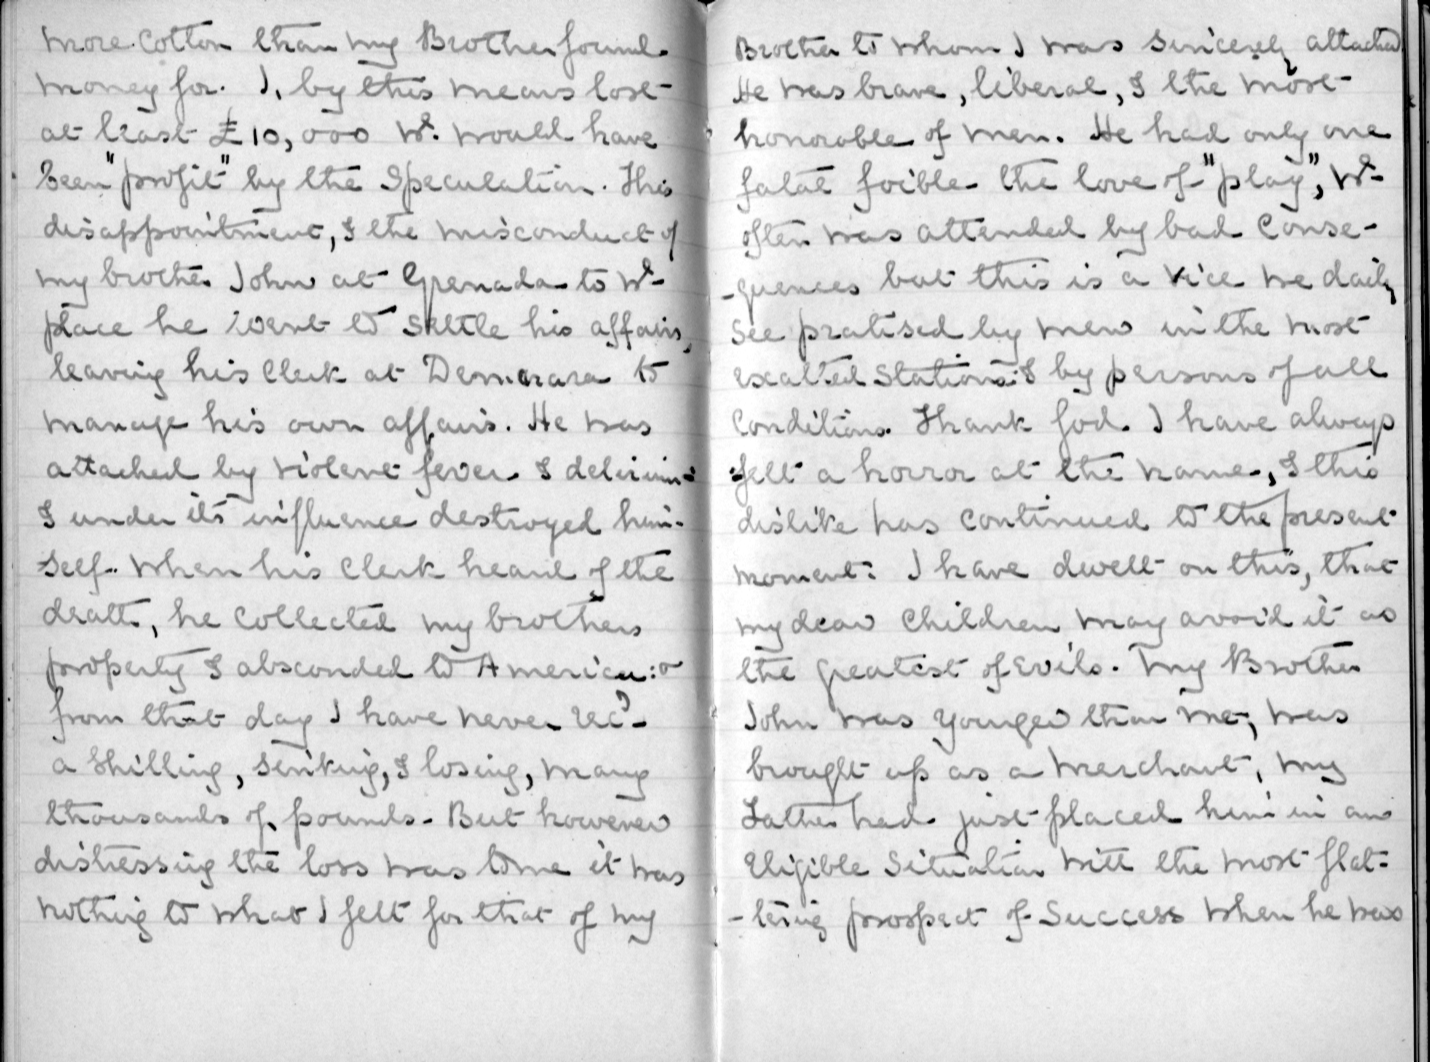 more Cotton than my Brother found
money for. I, by this means lost
at least £10,000 wh. would have
been "profit" by the Speculation. This
disappointment, & the misconduct of
my brother John at Grenada to wh
place he went to settle his affairs,
leaving his Clerk at Demerara to
manage his own affairs. He was
attacked by violent fever & delirium
& under its influence destroyed him-
self. When his Clerk heard of the
death, he collected my brothers
property & absconded to America: &
from that day I have never recd
a Shilling, sinking, & losing, many
thousands of pounds. But however
distressing the loss was to me it was
nothing to what I felt for that of my
Brother to whom I was sincerely attached
He was brave, liberal, & the most
honorable of men. He had only one
fatal foible the love of "play", wh
often was attended by bad Conse-
-quences but this is a Vice we daily
see pratised by men in the most
exalted Stations & by persons of all
Conditions. Thank God. I have always
felt a horror at the name, & this
dislike has continued to the present
moment: I have dwelt on this, that
my dear Children may avoid it as
the greatest of Evils. My Brother
John was younger than me, was
brought up as a Merchant, my
Father had just placed him in an
Eligible Situation with the most flat-
-tering prospect of Success when he was